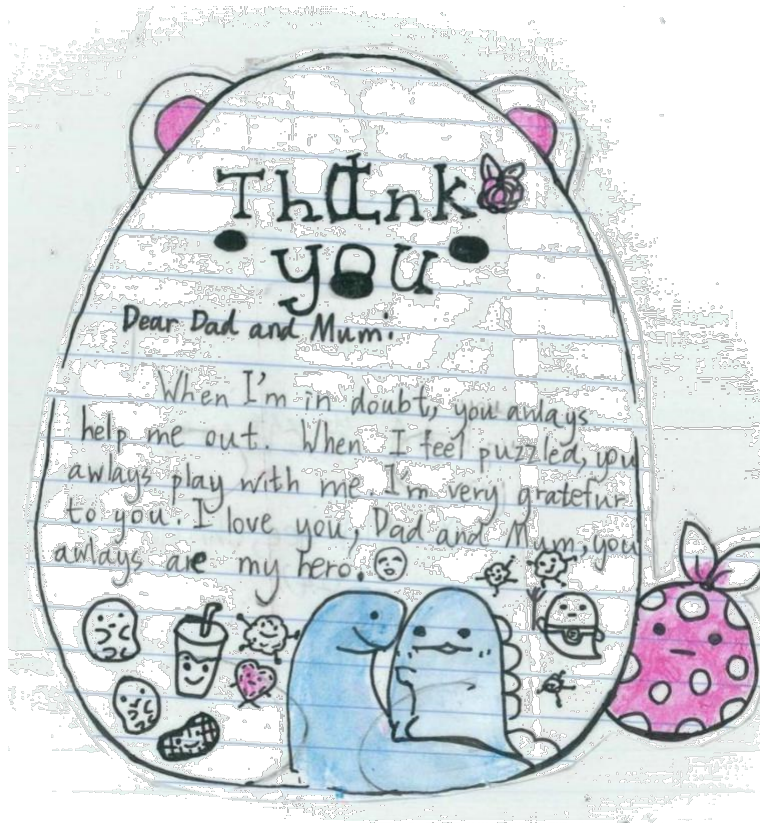 Thank
you
Dear Dad and Mum:
When I'm in doubt, you awlays
help me out. When I feel puzzled, you
awlays play with me. I'm very gratefur
to you. I love you, Dad and Mum, you
awlays are my hero.